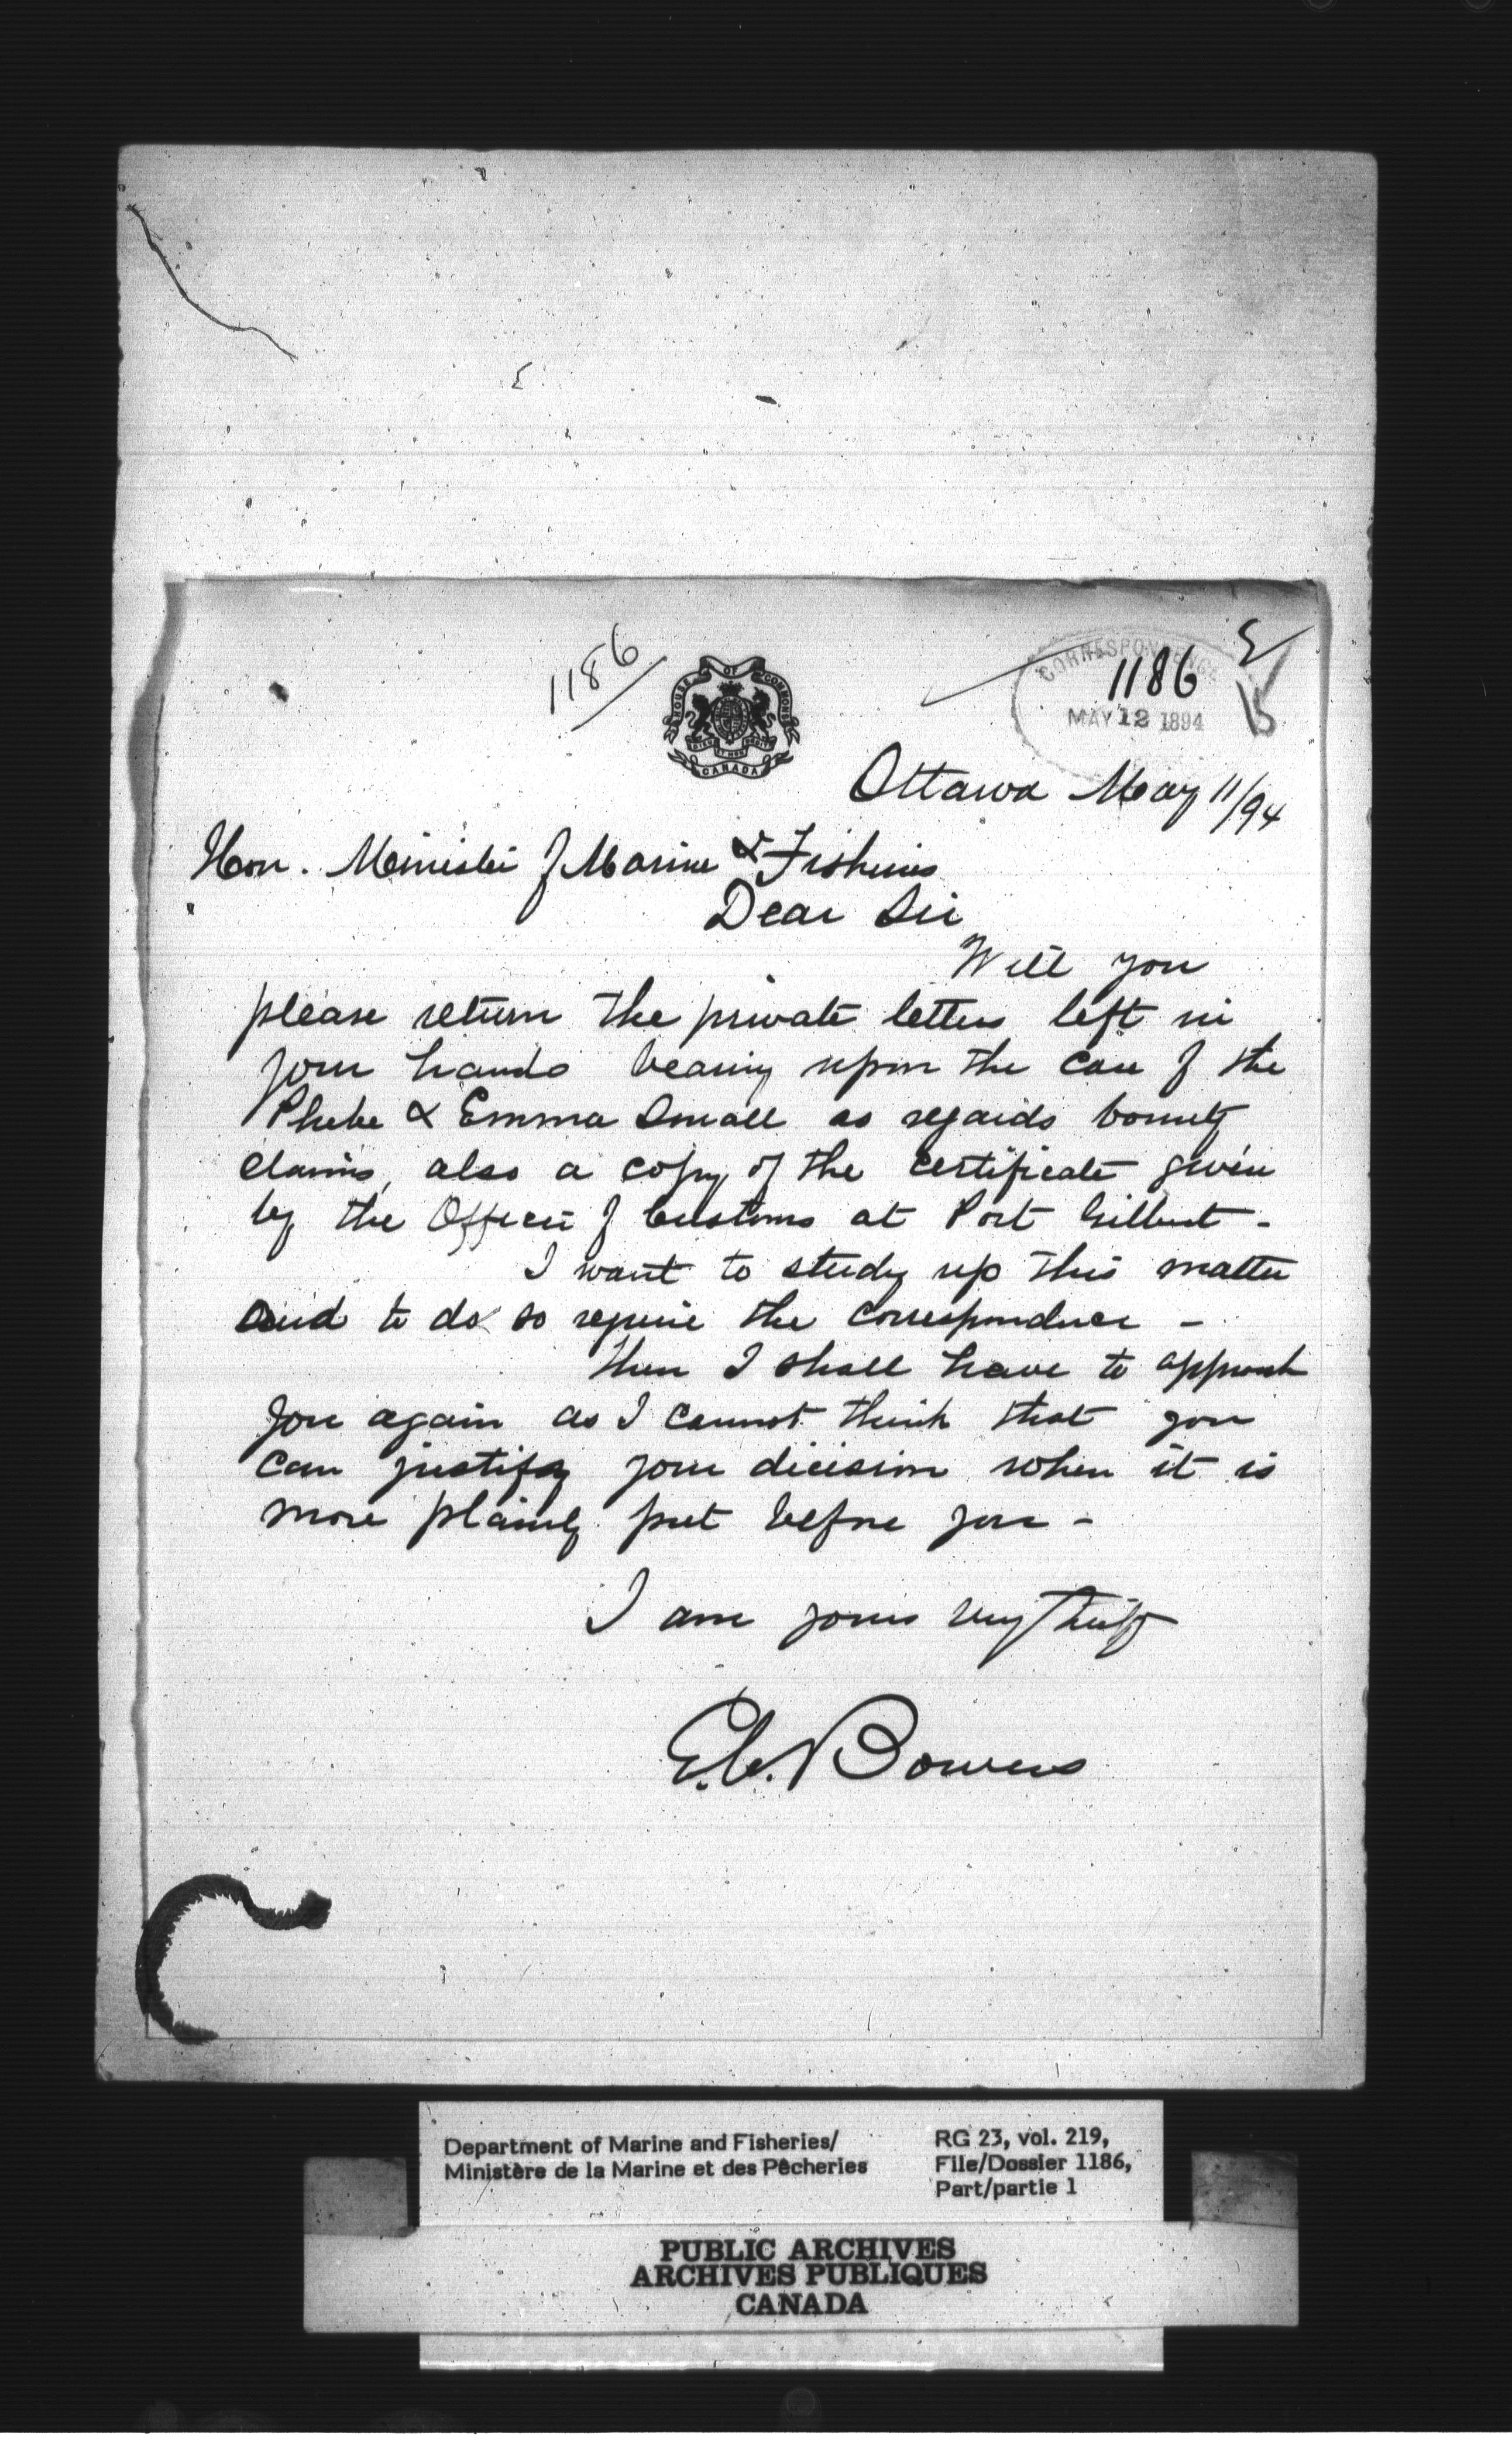 1186
HOUSE OF COMMONS
CANADA
CORRESPONDENCE
1186
MAY 12 1894
Ottawa May 11/94
Hon. Minister of Marine & Fisheries
Dear Sir
Will you
please return the private letters left in
your hands bearing upon the case of the
Phebe & Emma Small as regards bounty
claims, also a copy of the certificate given
by the Officer of Customs at Port Gilbert -
I want to study up this matter
and to do so require the correspondence -
Then I shall have to approach
you again as I cannot think that you
can justify your dicision when it is
more plainly put before you -
I am yours very truly
E.C. Bowers
Department of Marine and Fisheries/
Ministère de la Marine et des Pêcheries
RG 23, vol. 219,
File/Dossier 1186,
Part/partie 1
PUBLIC ARCHIVES
ARCHIVES PUBLIQUES
CANADA